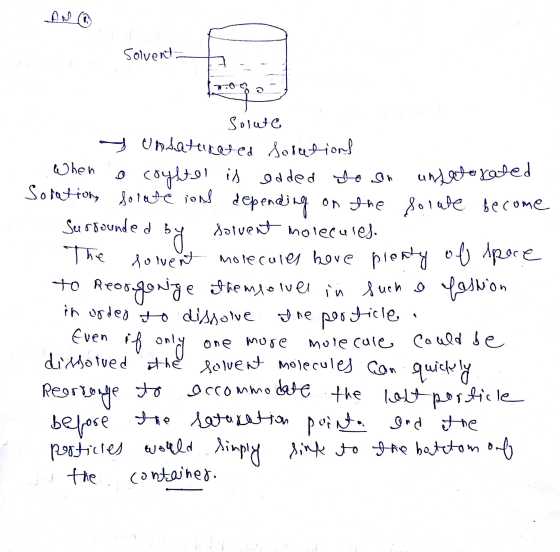 Ans ①
Solvent
Solute
→ Unsaturated Solutions
When a coystal is added to an unsatorated
Solution, solute ions depending on the solute become
Surrounded by solvent molecules.
The solvent molecules have plenty of space
to Reorganize themselves in such a fashion
in order to dissolve the particle.
Even if only one more molecule could be
dissolved the solvent molecules can quickly
Rearrange to accommodate the last particle
before the saturation point. and the
particles would simply sink to the bottom of
the container.